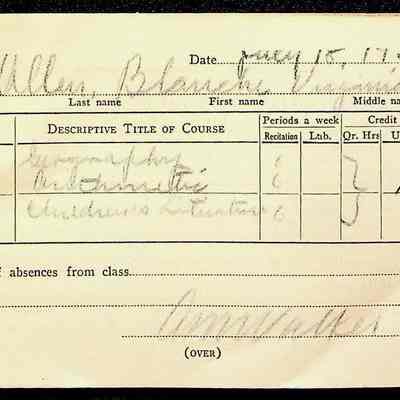 Date July 15, 19
Allen, Blanche Virginia
Last name First name Middle na
Descriptive Title of Course Periods a week Credit
Recitation Lab. Qr. Hrs U
Geography 6
Arithmetic 6
Children's Literature 6
f absences from class
Walker
(OVER)